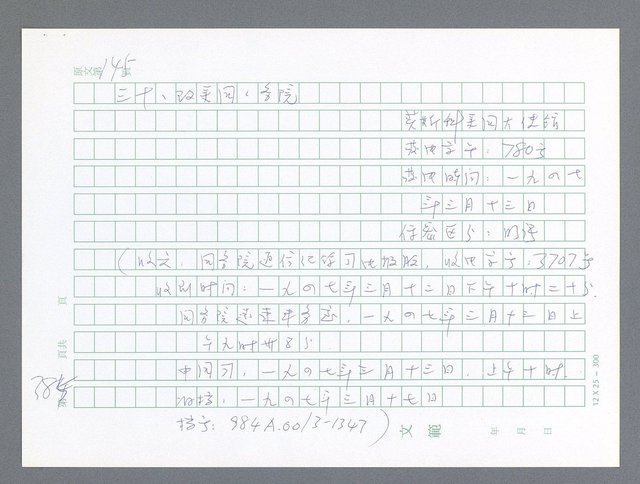 原文第145號
三十、致美国国务院
莫斯科美国大使馆
发电字号：780号
发电时间：一九四七
年三月十三日
保密区分：明语
（收文：国务院通信纪录司电报股，收电字号：3707号
收到时间：一九四七年三月十二日下午十时二十分.
国务院远东事务司，一九四七年三月十三日上
午九时廿8分
中国司，一九四七年三月十三日，上午十时.
归档：一九四七年三月十七日
档号：984A.00/3-1347）
頁
頁共
第
文範
年 月 日
12 X 25 — 300